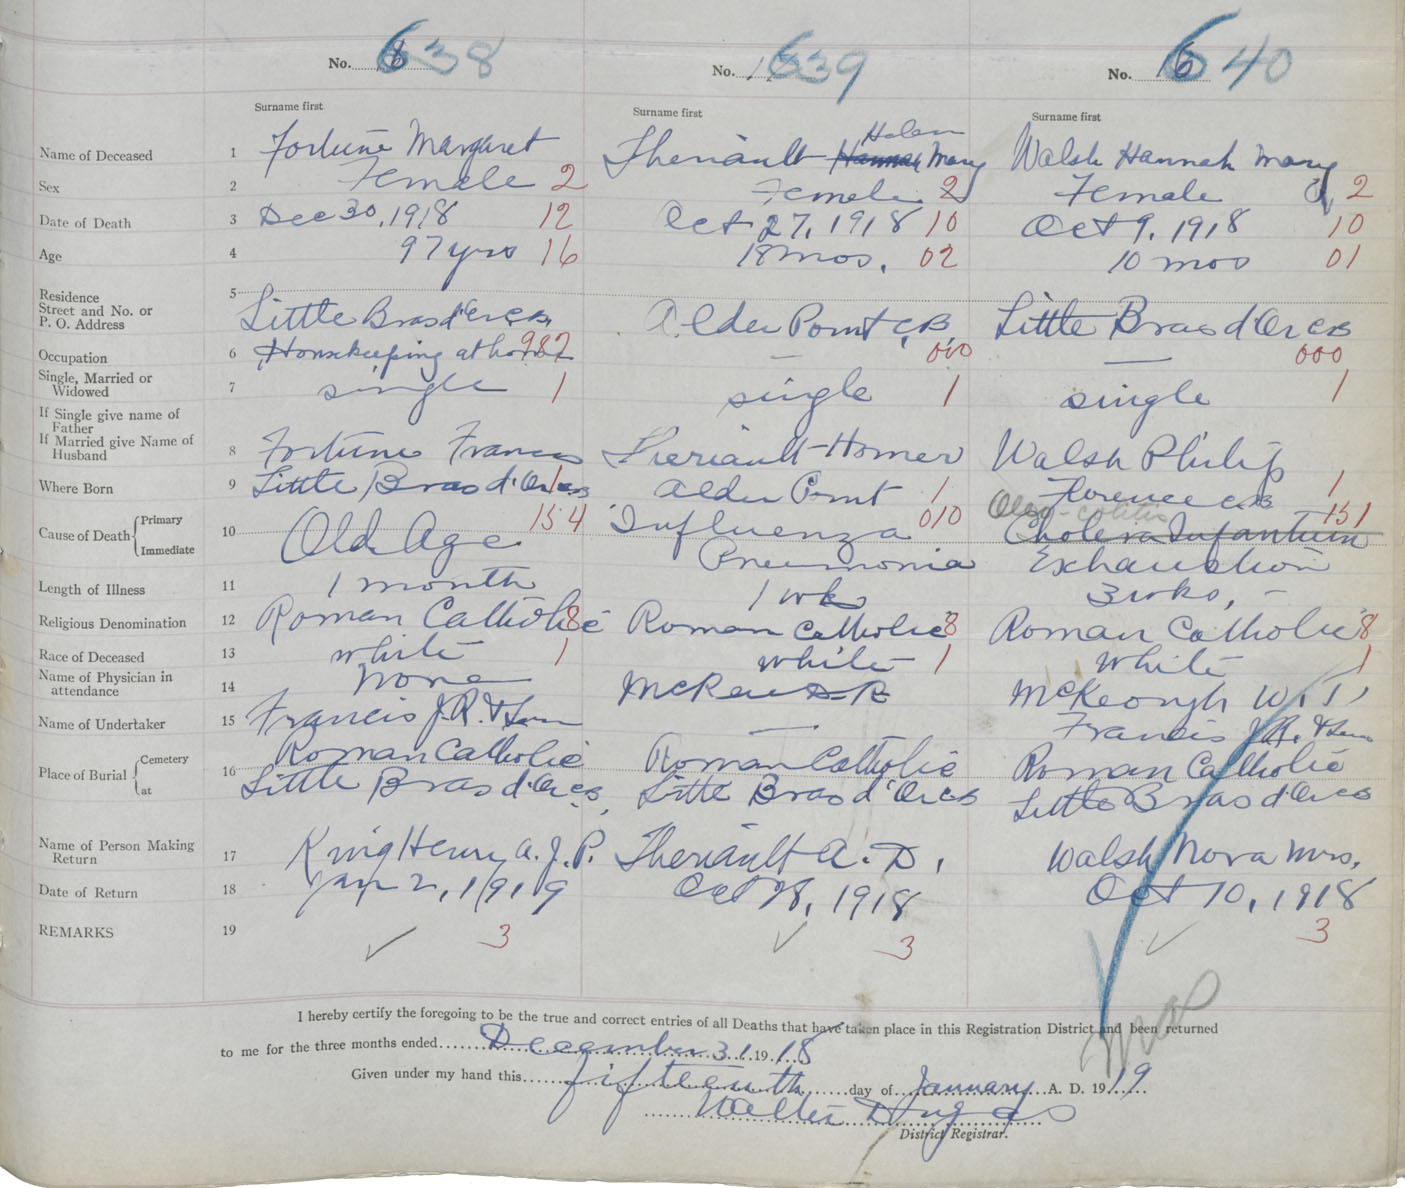 No. 638 No. 639 No. 640
Surname first Surname first Surname first
Name of Deceased 1 Fortune Margaret Theriault Hannah Helen Mary Walsh Hannah Mary
Sex 2 Female 2 Female 2 Female 2
Date of Death 3 Dec 30, 1918 12 Oct 27, 1918 10 Oct 9, 1918 10
Age 4 97 yrs 16 18 mos. 02 10 mos 01
Residence 5
Street and No. or
P. O. Address Little Bras d'Or C.B. Alder Point C.B. Little Bras d'Or C B
Occupation 6 Housekeeping at home 982 — 000 — 000
Single, Married or
Widowed 7 single 1 single 1 single 1
If Single give name of
Father
If Married give Name of
Husband 8 Fortune Francis Theriault Homer Walsh Philip
Where Born 9 Little Bras d'Or C B 1 Alder Point 1 Florence C B 1
Cause of Death Primary 10 Old Age 154 Influenza 010 Cholera Infantum 151
Immediate Pneumonia Exhaustion
Length of Illness 11 1 month 1 wk 3 wks, –
Religious Denomination 12 Roman Catholic 8 Roman Catholic 8 Roman Catholic 8
Race of Deceased 13 white 1 white 1 white 1
Name of Physician in
attendance 14 none McKeough W. T.
Name of Undertaker 15 Francis J.R. & Son — Francis J.R. & Son
Place of Burial Cemetery 16 Roman Catholic Roman Catholic Roman Catholic
at Little Bras d'Or C B, Little Bras d'Or C B Little Bras d'Or C B
Name of Person Making
Return 17 King Henry A. J.P. Theriault A. D. Walsh Nora Mrs.
Date of Return 18 Jan 2, 1919 Oct 28, 1918 Oct 10, 1918
REMARKS 19 ✓ 3 ✓ 3 ✓ 3
I hereby certify the foregoing to be the true and correct entries of all Deaths that have taken place in this Registration District and been returned
to me for the three months ended December 31 1918
Given under my hand this fifteenth day of January A. D. 1919
Walter Dugas
District Registrar.